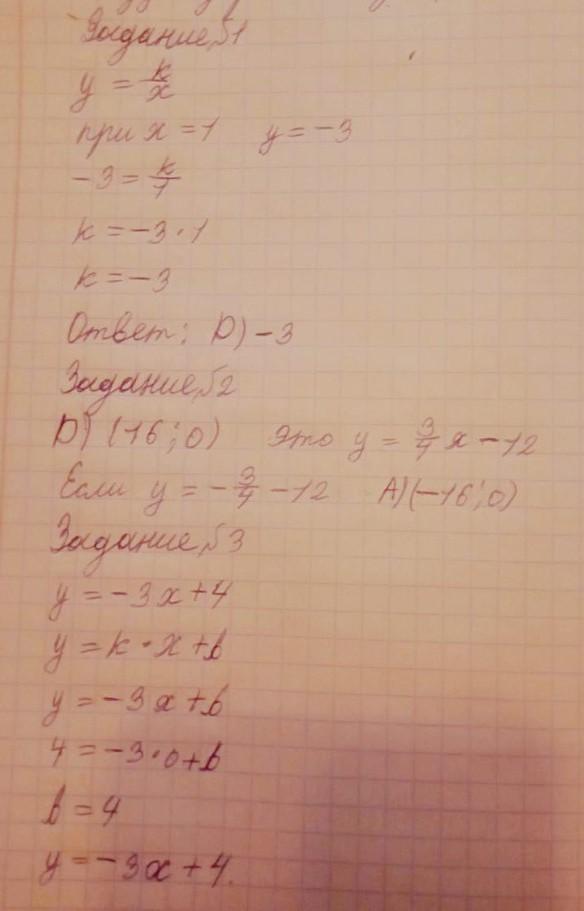 Задание №1
y = k/x
при x = 1 y = -3
-3 = k/1
k = -3 · 1
k = -3
Ответ: D) -3
Задание №2
D) (16; 0) это y = 3/4 x - 12
Если y = - 3/4 - 12 A) (-16; 0)
Задание №3
y = -3x + 4
y = k · x + b
y = -3x + b
4 = -3 · 0 + b
b = 4
y = -3x + 4.